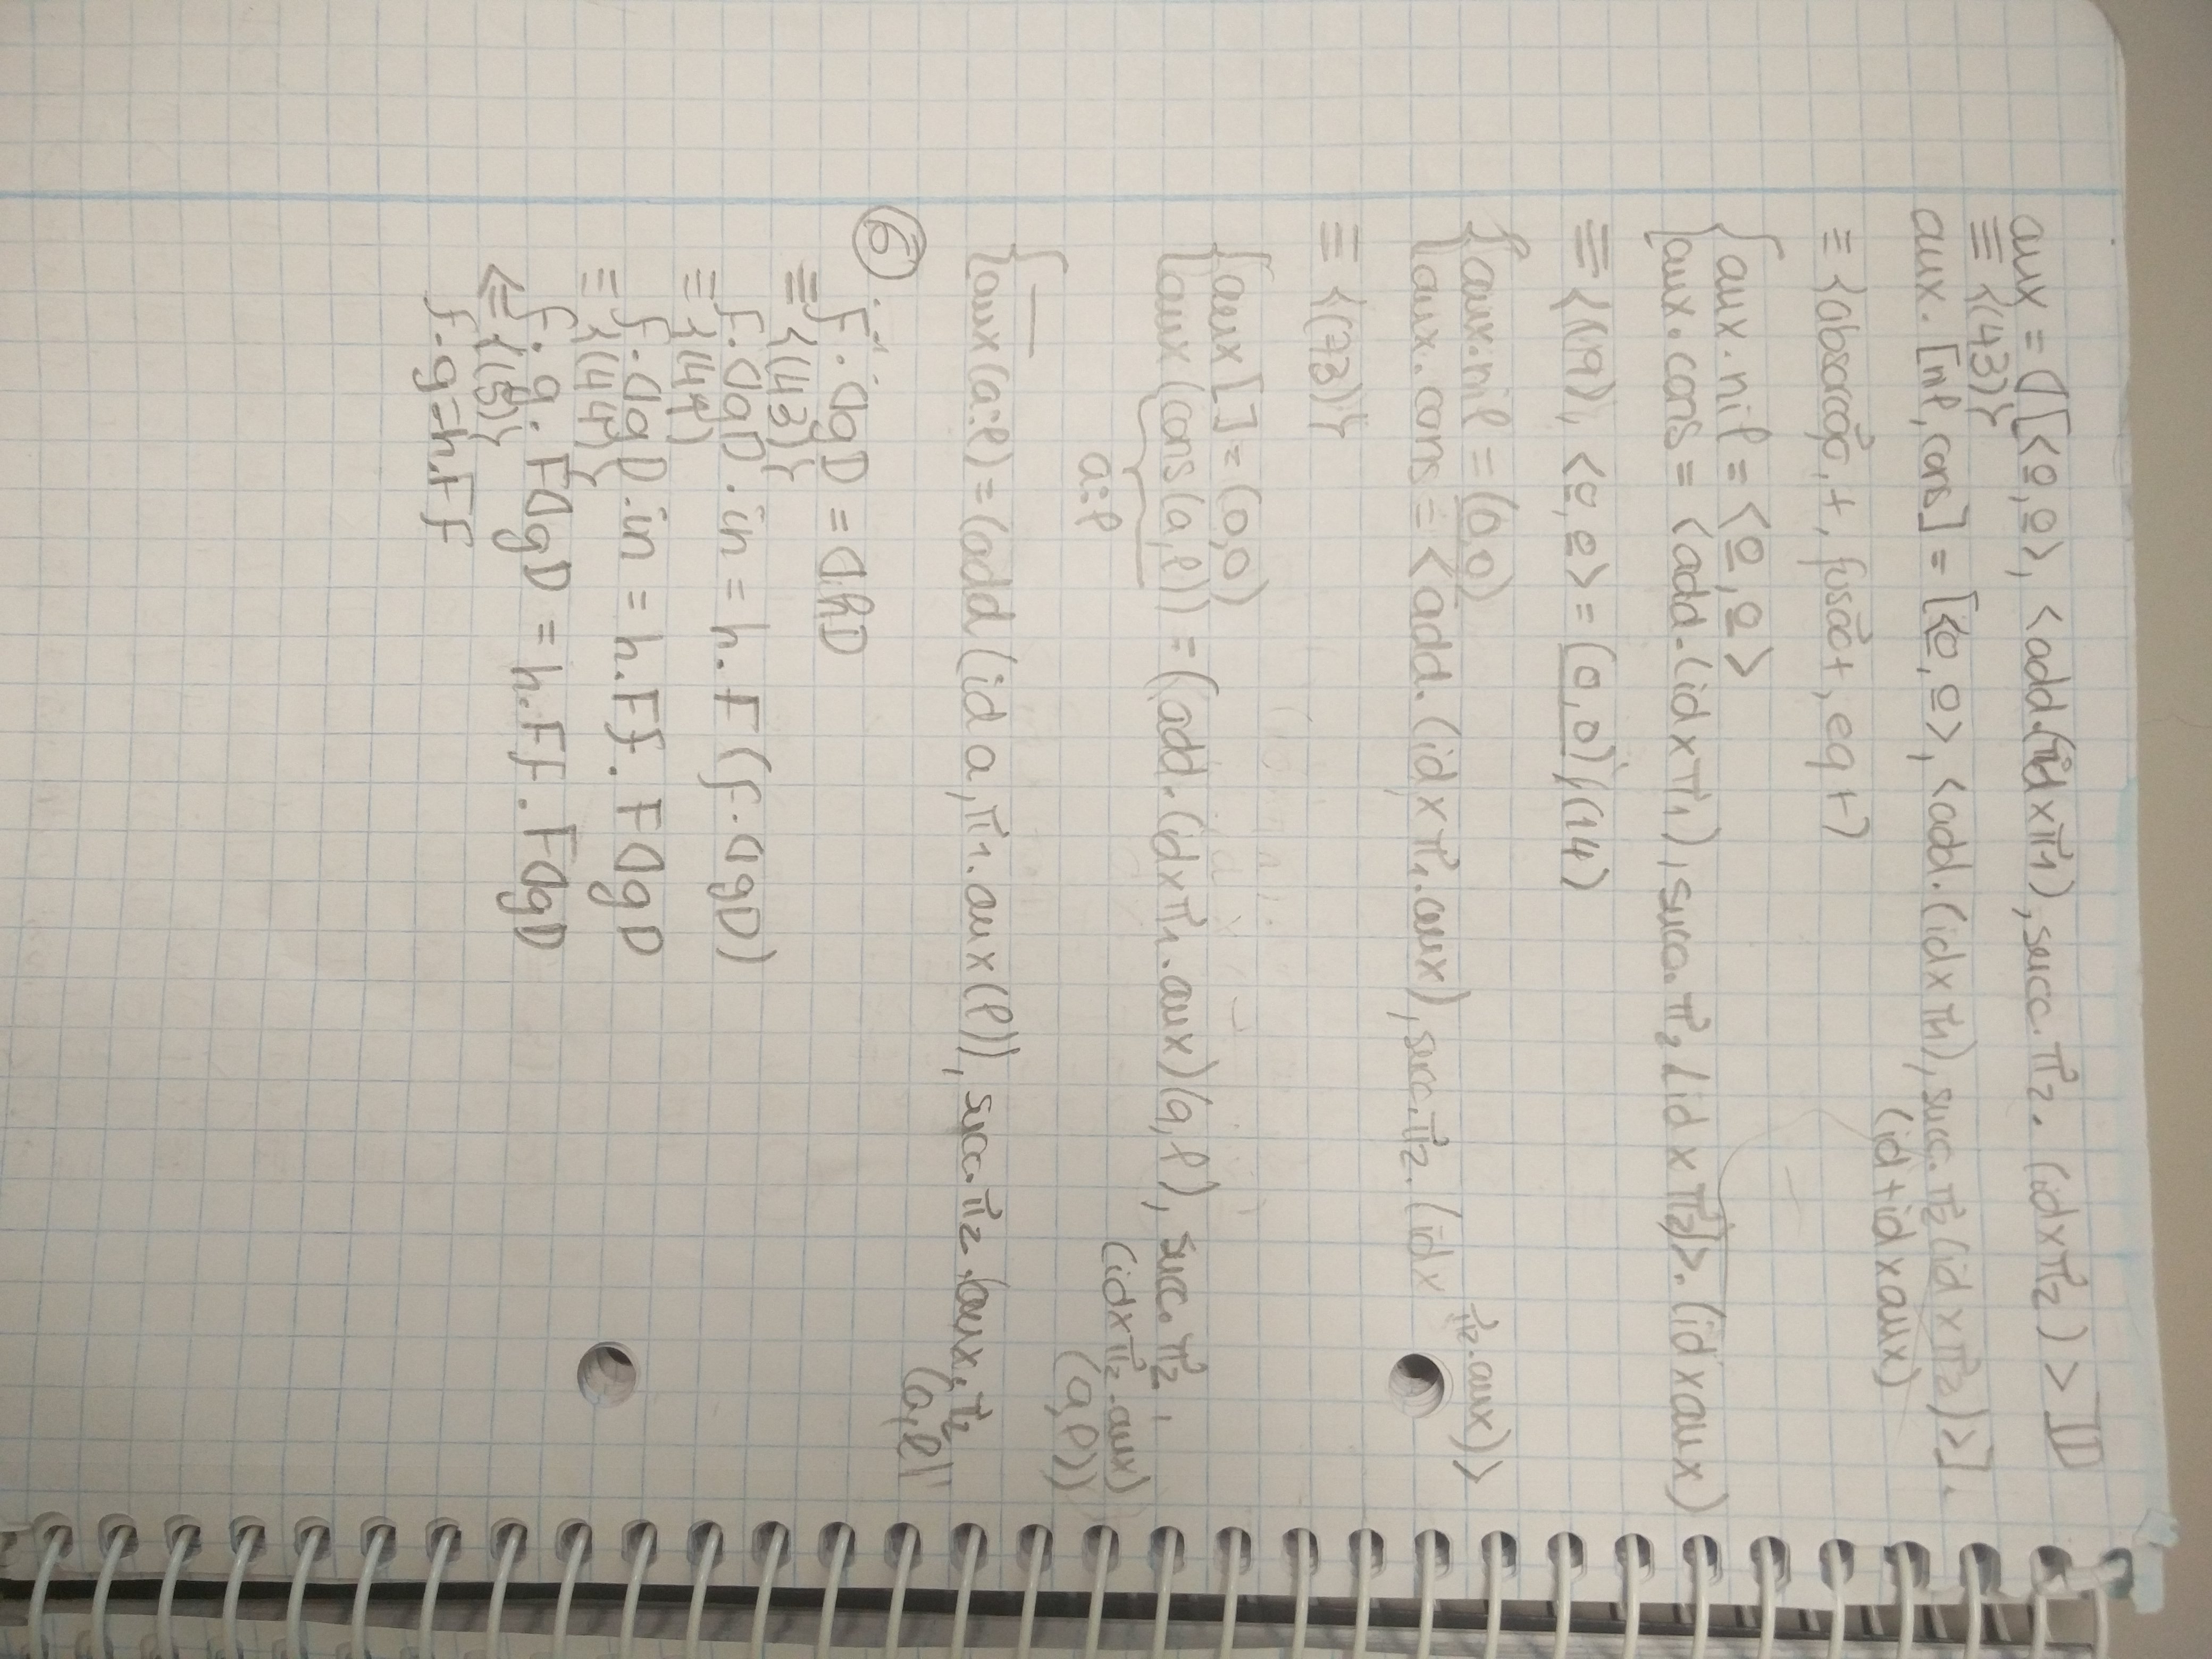 aux = ⦇[<0̲,0̲>, <add.(id×π1), succ.π2.(id×π2)>]⦈
≡ {(43)}
aux.[nil,cons] = [<0̲,0̲>, <add.(id×π1), succ.π2(id×π2)>].
(id+id×aux)
≡ {absorção,+, fusão+, eq+}
{aux.nil = <0̲,0̲>
aux.cons = <add.(id×π1), succ.π2(id×π2)>.(id×aux)
≡ {(19), <0̲,0̲> = (0,0), (14)
{aux.nil = (0,0)
aux.cons = <add.(id×π1.aux), succ.π2.(id× π2.aux)>
≡ {(73)}
{aux[] = (0,0)
aux(cons(a,l)) = (add.(id×π1.aux)(a,l), succ.π2.
(id×π2.aux)
a:l
(a,l))
{—
aux(a:l) = (add(id a, π1.aux(l)), succ.π2.(aux.π2
(a,l)
⑥ ....
f.⦇g⦈ = ⦇h⦈
≡ {(43)}
f.⦇g⦈.in = h.F(f.⦇g⦈)
≡
f.⦇g⦈.in = h.Ff.F⦇g⦈
≡ {(44)}
f.g.F⦇g⦈ = h.Ff.F⦇g⦈
⇐ {(5)}
f.g=h.Ff